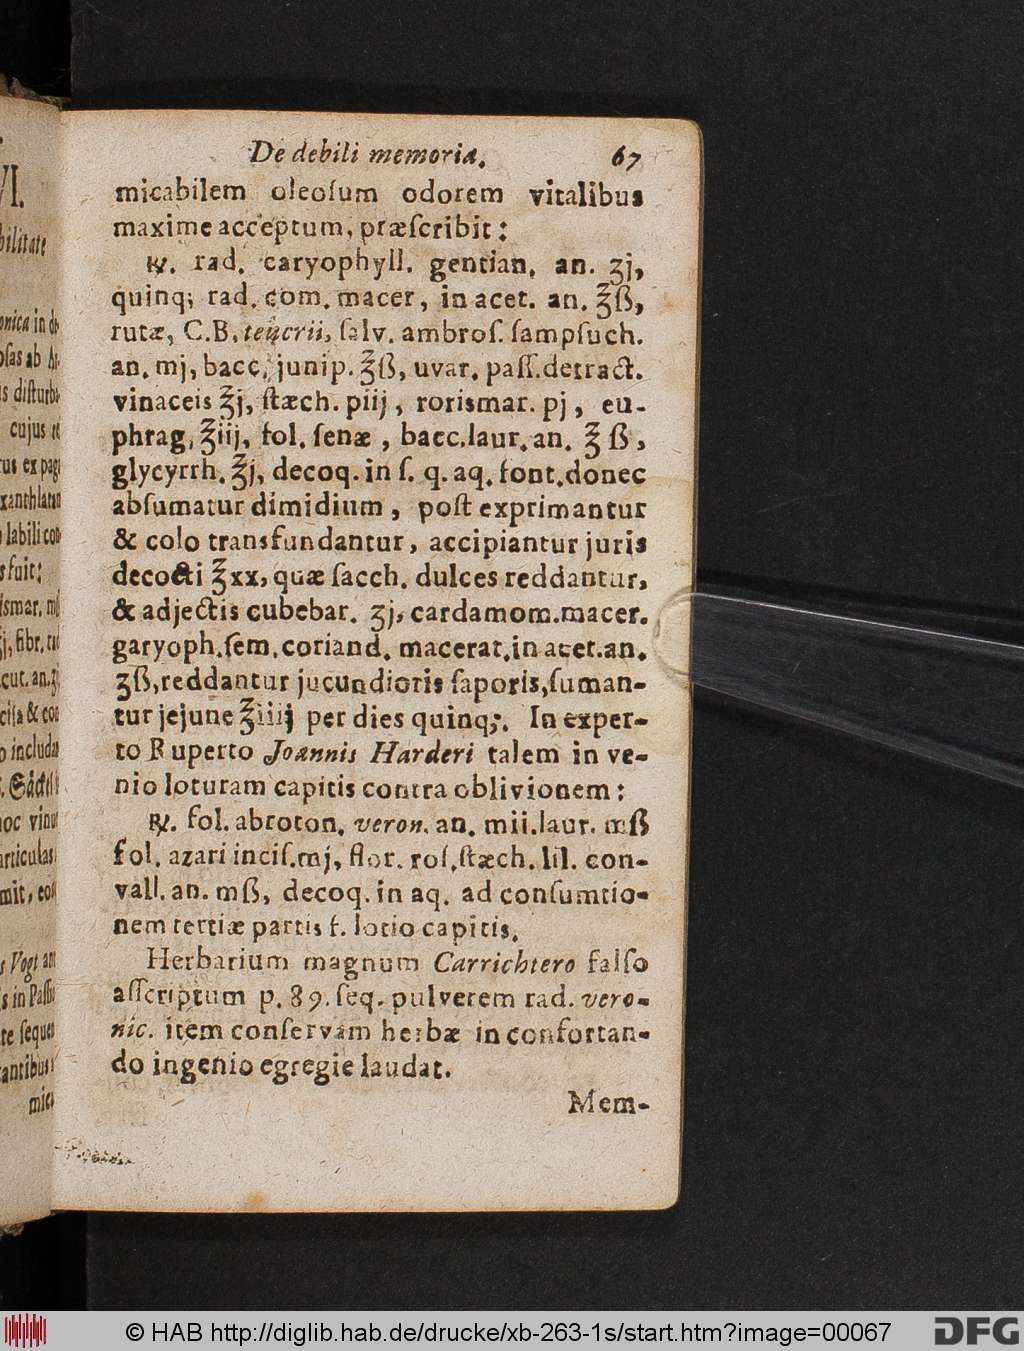 VI.
bilitate
onica in de-
osas ab Ar-
is disturba-
cujus et
rus ex pagi
xanthlatan
labili con
s fuit:
ismar. mß
ʒj, fibr. rad
cut. an. ʒj
cisa & con
o includan
Säckel
hoc vinum
articulas
mit, eos
s Vogt
is in Passi
te sequen
antibus
mica
De debili memoria. 67
micabilem oleoſum odorem vitalibus
maxime acceptum, præſcribit:
℞. rad. caryophyll. gentian. an. ʒj,
quinq; rad. com. macer, in acet. an. ℥ß,
rutæ, C.B. teucrii, ſalv. ambroſ. ſampſuch.
an. mj, bacc. junip. ℥ß, uvar. paſſ. detract.
vinaceis ℥j, ſtæch. piij, rorismar. pj, eu-
phrag. ℥iij, fol. ſenæ, bacc. laur. an. ℥ß,
glycyrrh. ℥j, decoq. in ſ. q. aq. font. donec
abſumatur dimidium, poſt exprimantur
& colo transfundantur, accipiantur juris
decocti ℥xx, quæ ſacch. dulces reddantur,
& adjectis cubebar. ʒj, cardamom. macer.
garyoph. ſem. coriand. macerat. in acet. an.
ʒß, reddantur jucundioris ſaporis, ſuman-
tur jejune ℥iiij per dies quinq;. In exper-
to Ruperto Joannis Harderi talem in ve-
nio loturam capitis contra oblivionem:
℞. fol. abroton. veron. an. mii. laur. mß
fol. azari inciſ. mj, flor. roſ. ſtæch. lil. con-
vall. an. mß, decoq. in aq. ad conſumtio-
nem tertiæ partis f. lotio capitis.
Herbarium magnum Carrichtero falſo
aſſcriptum p. 89. ſeq. pulverem rad. vero-
nic. item conſervam herbæ in confortan-
do ingenio egregie laudat.
Mem-
© HAB http://diglib.hab.de/drucke/xb-263-1s/start.htm?image=00067
DFG